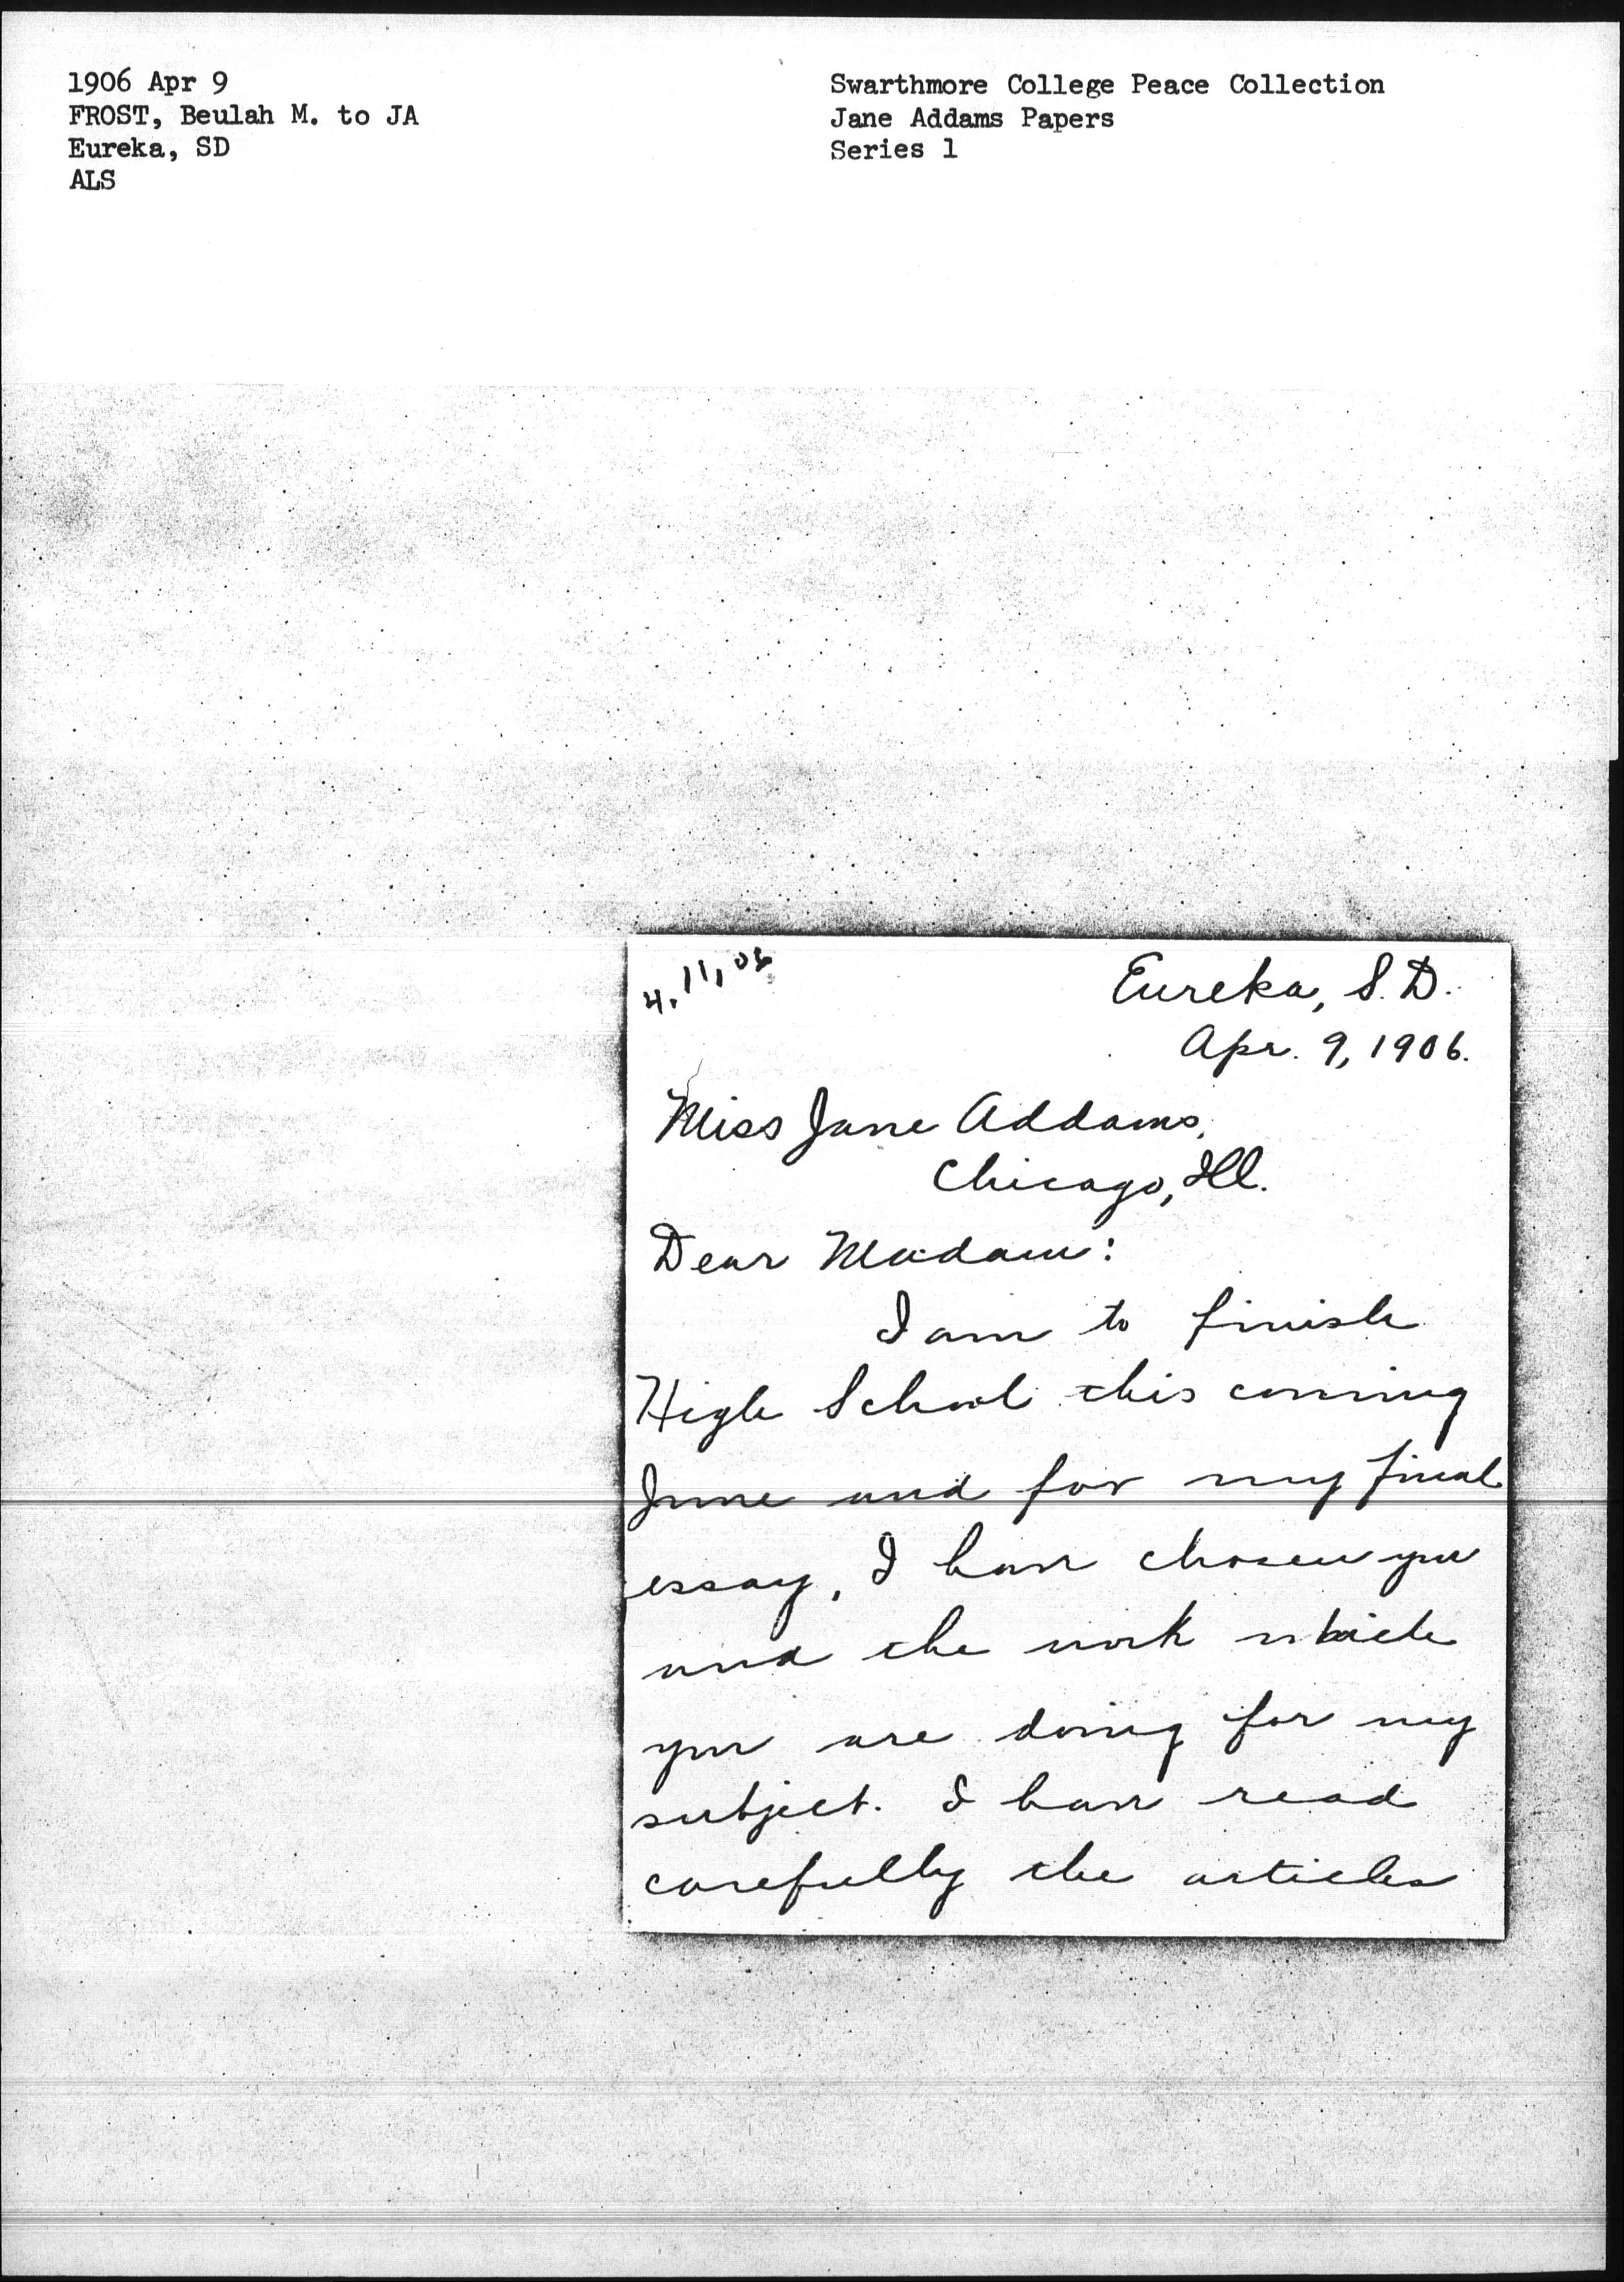 1906 Apr 9
FROST, Beulah M. to JA
Eureka, SD
ALS
Swarthmore College Peace Collection
Jane Addams Papers
Series 1
4.11,06
Eureka, S.D.
Apr. 9, 1906.
Miss Jane Addams,
Chicago, Ill.
Dear Madam:
I am to finish
High School this coming
June and for my final
essay, I have chosen you
and the work which
you are doing for my
subject. I have read
carefully the articles